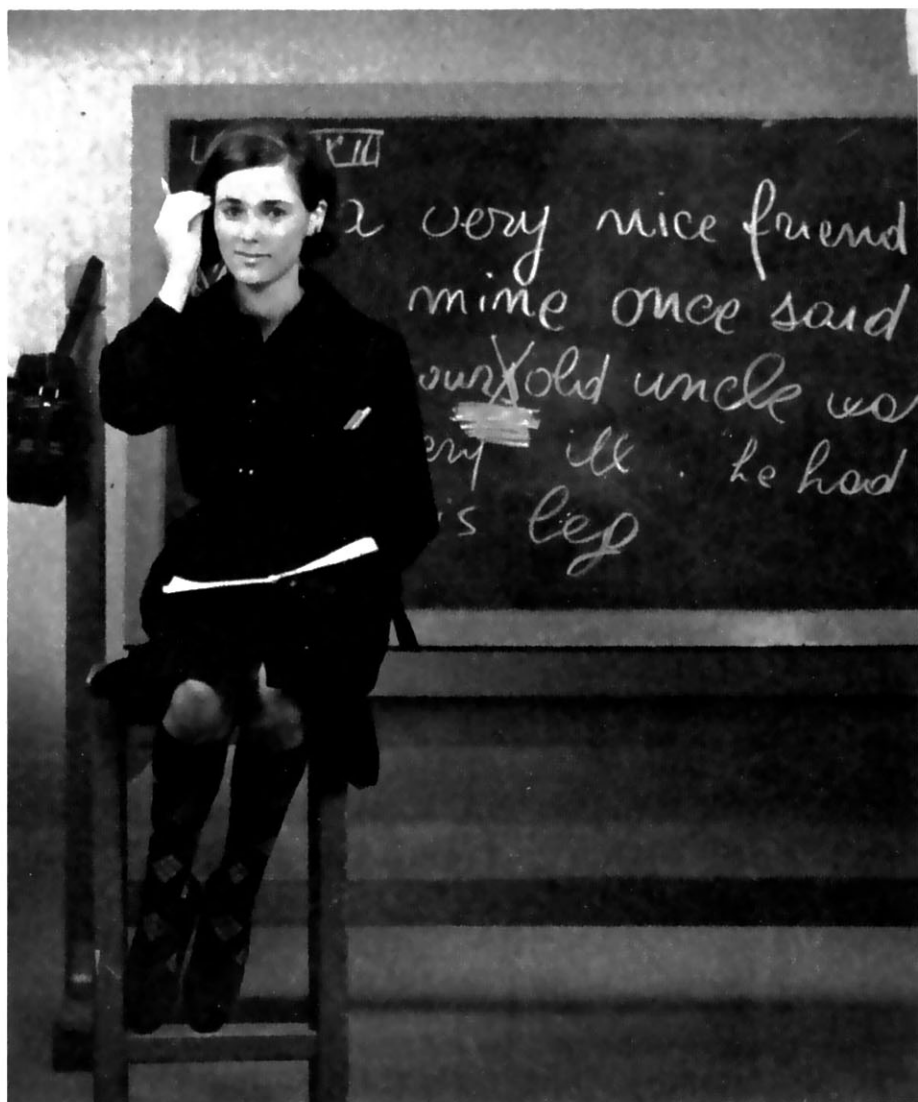 XII
a very nice friend
mine once said
our old uncle wa
ery ill. he had
is leg